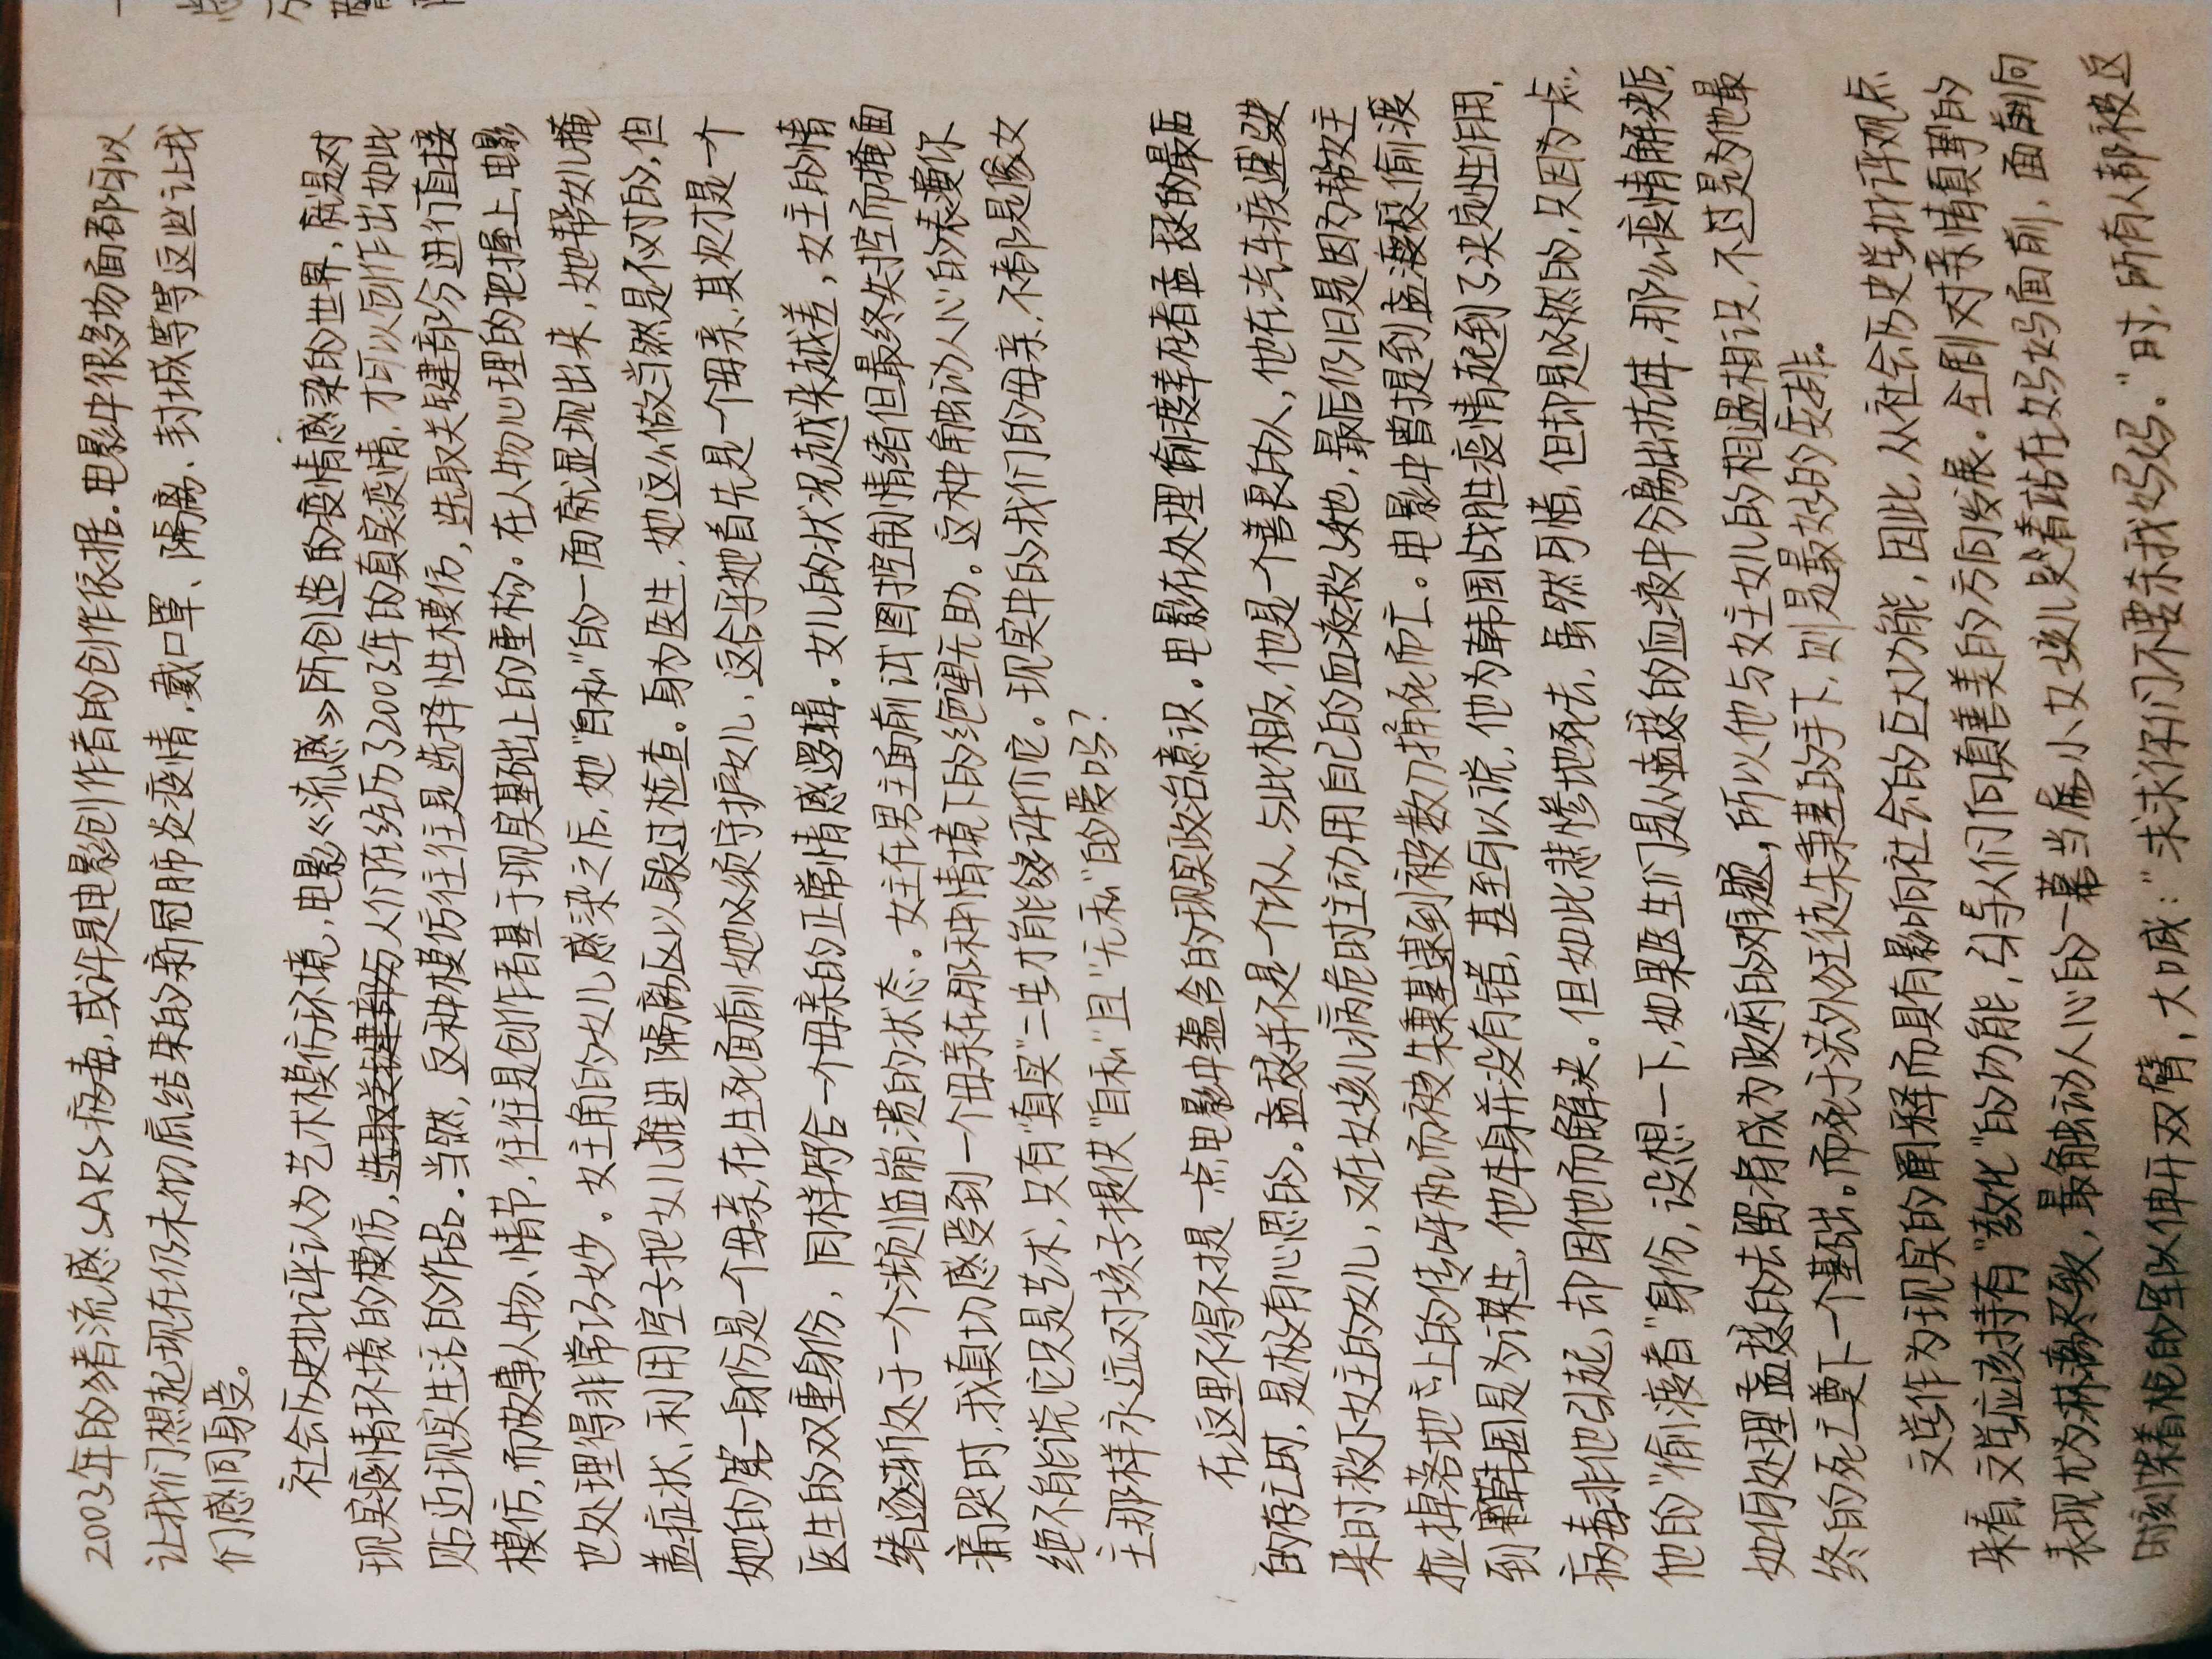 2003年的猪流感SARS病毒,或许是电影创作者的创作依据。电影中很多场面都可以
让我们想起现在仍未彻底结束的新冠肺炎疫情,戴口罩、隔离、封城等等这些让我
们感同身受。
社会历史批评认为艺术模仿环境,电影《流感》所创造的疫情感染的世界,就是对
现实疫情环境的模仿,选取关键部分人们所经历了2003年的真实疫情,才可以创作出如此
贴近现实生活的作品。当然,这种模仿往往是选择性模仿,选取关键部分进行直接
模仿,而故事人物、情节,往往是创作者基于现实基础上的重构。在人物心理的把握上,电影
也处理得非常巧妙。女主角的女儿感染之后,她"自私"的一面就显现出来,她帮女儿掩
盖症状、利用空子把女儿推进隔离区以躲过检查。身为医生,她这么做当然是不对的,但
她的第一身份是一个母亲,在生死面前她必须守护女儿,这合乎她首先是一个母亲,其次才是一个
医生的双重身份,同样符合一个母亲的正常情感逻辑。女儿的状况越来越差,女主的情
绪逐渐处于一个濒临崩溃的状态。女主在男主面前试图控制情绪但最终失控而掩面
痛哭时,我真切感受到一个母亲在那种情境下的绝望无助。这种触动人心的表演你
绝不能说它只是艺术,只有"真实"二字才能够评价它。现实中的我们的母亲,不都是像女
主那样永远对孩子提供"自私"且"无私"的爱吗?
在这里不得不提一点电影中蕴含的现实政治意识。电影在处理偷渡幸存者孟瑟的最后
的存亡时,是极有心思的。孟瑟并不是一个坏人,与此相反,他是一个善良的人,他在汽车疾速驶
来时救下女主的女儿,又在女孩儿病危时主动用自己的血液救了她,最后仍旧是因为帮女主
捡掉落地上的传呼机而被朱秉基逮到被数刀捅死而亡。电影中曾提到孟瑟偷渡
到韩国是为谋生,他本身并没有错,甚至可以说,他为韩国战胜疫情起到了决定性作用,
病毒非他引起,却因他而解决。但如此悲惨地死去,虽然可惜,但却是必然的,只因为一点,
他的"偷渡者"身份,设想一下,如果医生们是从孟瑟的血液中分离出抗体,那么疫情解决后,
如何处理孟瑟的去留将成为政府的难题,所以他与女主女儿的相遇相识,不过是为他最
终的死亡奠下一个基础。而死于法外狂徒朱秉基的手下,则是最好的安排。
文学作为现实的阐释而具有影响社会的巨大功能,因此,从社会历史学批评观点
来看,文学应该持有"教化"的功能,引导人们向真善美的方向发展。全剧对亲情真挚的
表现尤为淋漓尽致,最触动人心的一幕当属小女孩儿哭着站在妈妈面前,面向
时刻架着枪的军队伸开双臂,大喊:"求求你们不要杀我妈妈。"时,所有人都被这